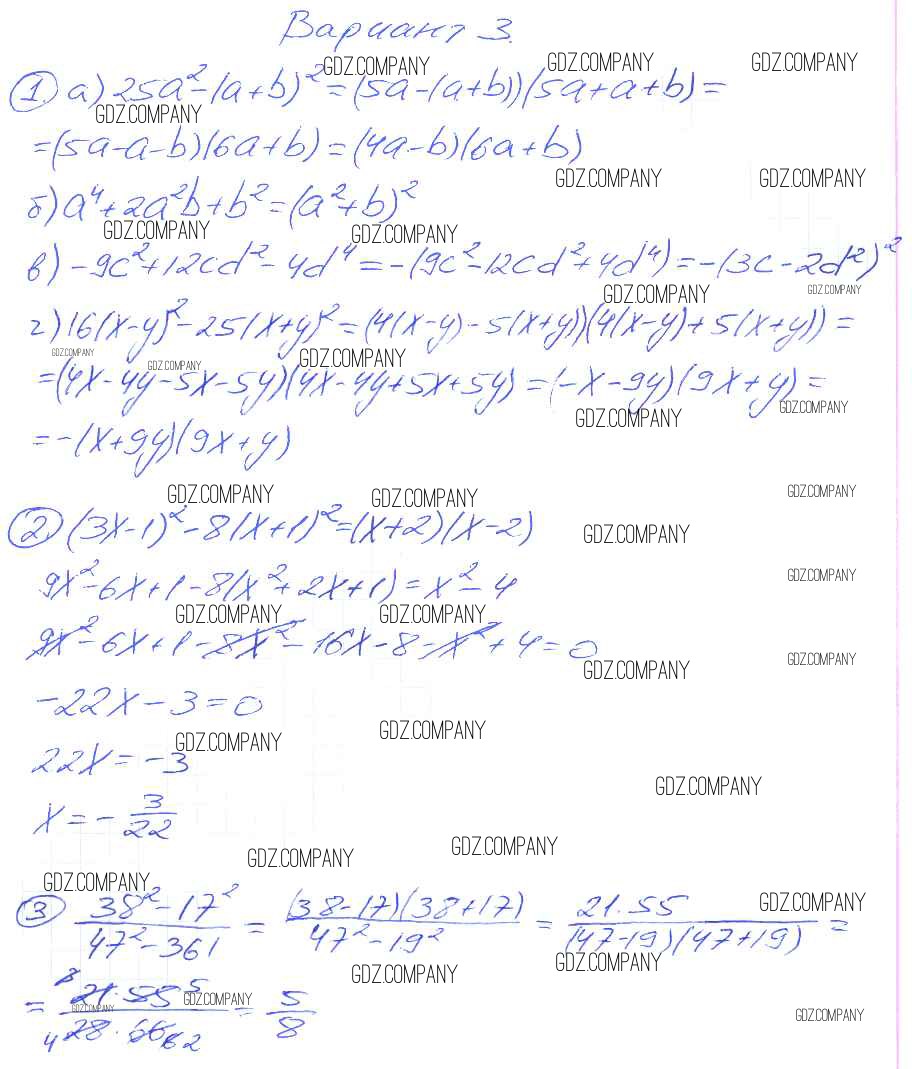 Вариант 3.
GDZ.COMPANY GDZ.COMPANY GDZ.COMPANY
1. а) 25a² - (a+b)² = (5a-(a+b))(5a+a+b) =
GDZ.COMPANY
= (5a-a-b)(6a+b) = (4a-b)(6a+b)
GDZ.COMPANY GDZ.COMPANY
б) a⁴ + 2a²b + b² = (a²+b)²
GDZ.COMPANY GDZ.COMPANY
в) -9c² + 12cd² - 4d⁴ = -(9c² - 12cd² + 4d⁴) = -(3c - 2d²)²
GDZ.COMPANY GDZ.COMPANY
г) 16(x-y)² - 25(x+y)² = (4(x-y) - 5(x+y))(4(x-y) + 5(x+y)) =
GDZ.COMPANY GDZ.COMPANY GDZ.COMPANY
= (4x-4y-5x-5y)(4x-4y+5x+5y) = (-x-9y)(9x+y) =
GDZ.COMPANY GDZ.COMPANY
= -(x+9y)(9x+y)
GDZ.COMPANY GDZ.COMPANY GDZ.COMPANY
2 (3x-1)² - 8(x+1)² = (x+2)(x-2)
GDZ.COMPANY
9x² - 6x + 1 - 8(x² + 2x + 1) = x² - 4
GDZ.COMPANY
GDZ.COMPANY GDZ.COMPANY
9x² - 6x + 1 - 8x² - 16x - 8 - x² + 4 = 0
GDZ.COMPANY GDZ.COMPANY
-22x - 3 = 0
GDZ.COMPANY GDZ.COMPANY
22x = -3
GDZ.COMPANY
x = - 3/22
GDZ.COMPANY GDZ.COMPANY
GDZ.COMPANY GDZ.COMPANY
3 (38² - 17²)/(47² - 361) = ((38-17)(38+17))/(47² - 19²) = (21·55)/((47-19)(47+19)) =
GDZ.COMPANY GDZ.COMPANY
GDZ.COMPANY GDZ.COMPANY GDZ.COMPANY
= (21·55)/(28·66) = 5/8